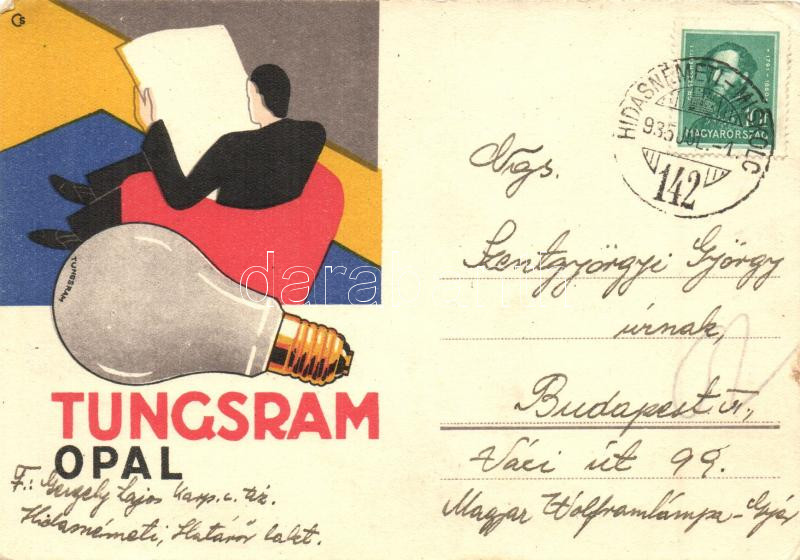 CS
TUNGSRAM
TUNGSRAM
OPAL
F.: Gergely Lajos karp. c. őr.
Hidasnémeti, Határőr lakt.
HIDASNÉMETI-MISKOLC
935 JUL. -1.
142
1791-1860
10f
MAGYARORSZÁG
Ngs.
Szentgyörgyi György
úrnak,
Budapest. VI.,
Váci út 99.
Magyar Wolframlámpa-Gyár
darabanth